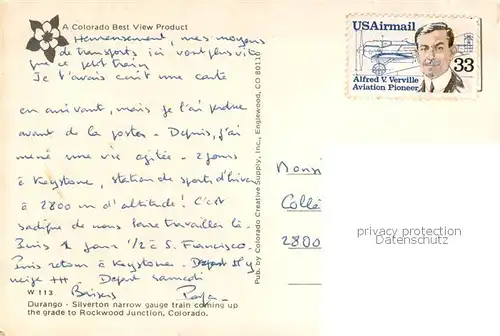 A Colorado Best View Product
Heureusement, mes moyens
de transports ici vont plus vite
que ce petit train
Je t'avais écrit une carte
en arrivant, mais je l'ai perdue
avant de la poster. Depuis, j'ai
mené une vie agitée. 2 jours
à Keystone, station de sports d'hiver
à 2800 m d'altitude! C'est
sadique de nous faire travailler là.
Puis 1 jour 1/2 à S. Francisco.
Puis retour à Keystone. Il y
neige ++ Départ samedi
Baisers Papa
W 113
Durango - Silverton narrow gauge train coming up
the grade to Rockwood Junction, Colorado.
Pub. by Colorado Creative Supply, Inc., Englewood, CO 80110
USAirmail
33
Alfred V. Verville
Aviation Pioneer
Monsi
Collè
2800
privacy protection